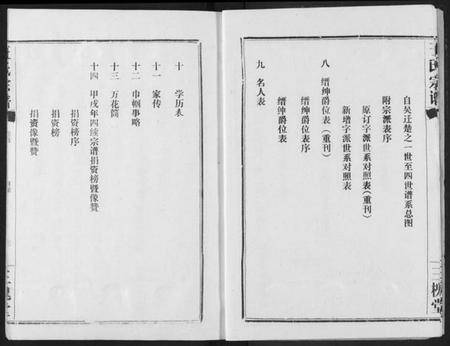 王氏宗谱
自吴迁楚之一世至四世谱系总图
附宗派表序
原订字派世系对照表(重刊)
新增字派世系对照表
八 缙绅爵位表(重刊)
缙绅爵位表序
缙绅爵位表
九 名人表
三槐堂
十 学历表
十一 家传
十二 巾帼事略
十三 万花筒
十四 甲戌年四续宗谱捐资榜暨像赞
捐资榜序
捐资榜
捐资像暨赞